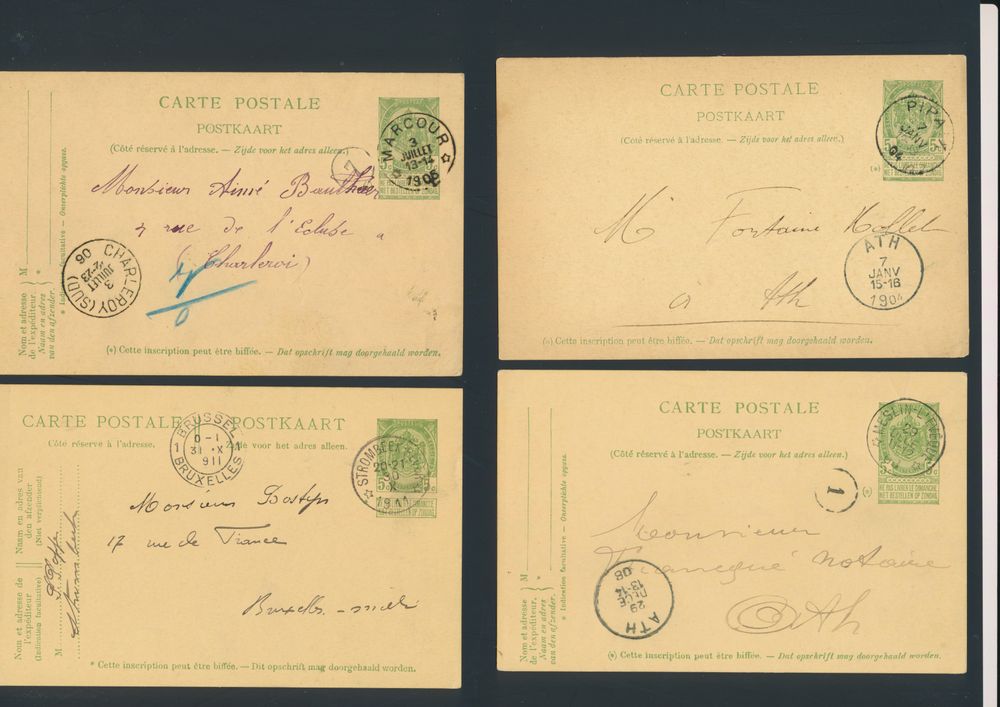 CARTE POSTALE
POSTKAART
(Côté réservé à l'adresse. — Zijde voor het adres alleen.)
MARCOUR
3
JUILLET
13-14
7
Monsieur Aimé
7 rue de l'Ecluse
(Charleroi)
CHARLEROY (SUD)
3
JUILLET
06
Nom et adresse M
de l'expéditeur.
Naam en adres
van den afzender.
* Indication facultative — Onverplichte opgave.
(*) Cette inscription peut être biffée. — Dat opschrift mag doorgehaald worden.
CARTE POSTALE
POSTKAART
(Côté réservé à l'adresse. — Zijde voor het adres alleen.)
PIPAIX
7
JANV
04
5c 5c
NE PAS LIVRER LE DIMANCHE
NIET BESTELLEN OP ZONDAG
(*)
M. Fontaine
à Ath
ATH
7
JANV
15-16
1904
(*) Cette inscription peut être biffée. — Dat opschrift mag doorgehaald worden.
CARTE POSTALE POSTKAART
Côté réservé à l'adresse. Zijde voor het adres alleen.
1 BRUSSEL 1
0-1
31 X
911
BRUXELLES
20-21
30
X
1911
Monsieur
17 rue de France
Bruxelles - midi
Nom et adresse de Naam en adres van
l'expéditeur den afzender
(Indication facultative) (Niet verplichtend)
M
* Cette inscription peut être biffée. — Dit opschrift mag doorgehaald worden.
CARTE POSTALE
POSTKAART
(Côté réservé à l'adresse. — Zijde voor het adres alleen.)
MESLIN-L'EVEQUE
5c 5c
NE PAS LIVRER LE DIMANCHE
NIET BESTELLEN OP ZONDAG
(*)
1
Monsieur
notaire
Ath
ATH
29
DECE
13-14
08
Nom et adresse M
de l'expéditeur.
Naam en adres
van den afzender.
* Indication facultative — Onverplichte opgave.
(*) Cette inscription peut être biffée. — Dat opschrift mag doorgehaald worden.